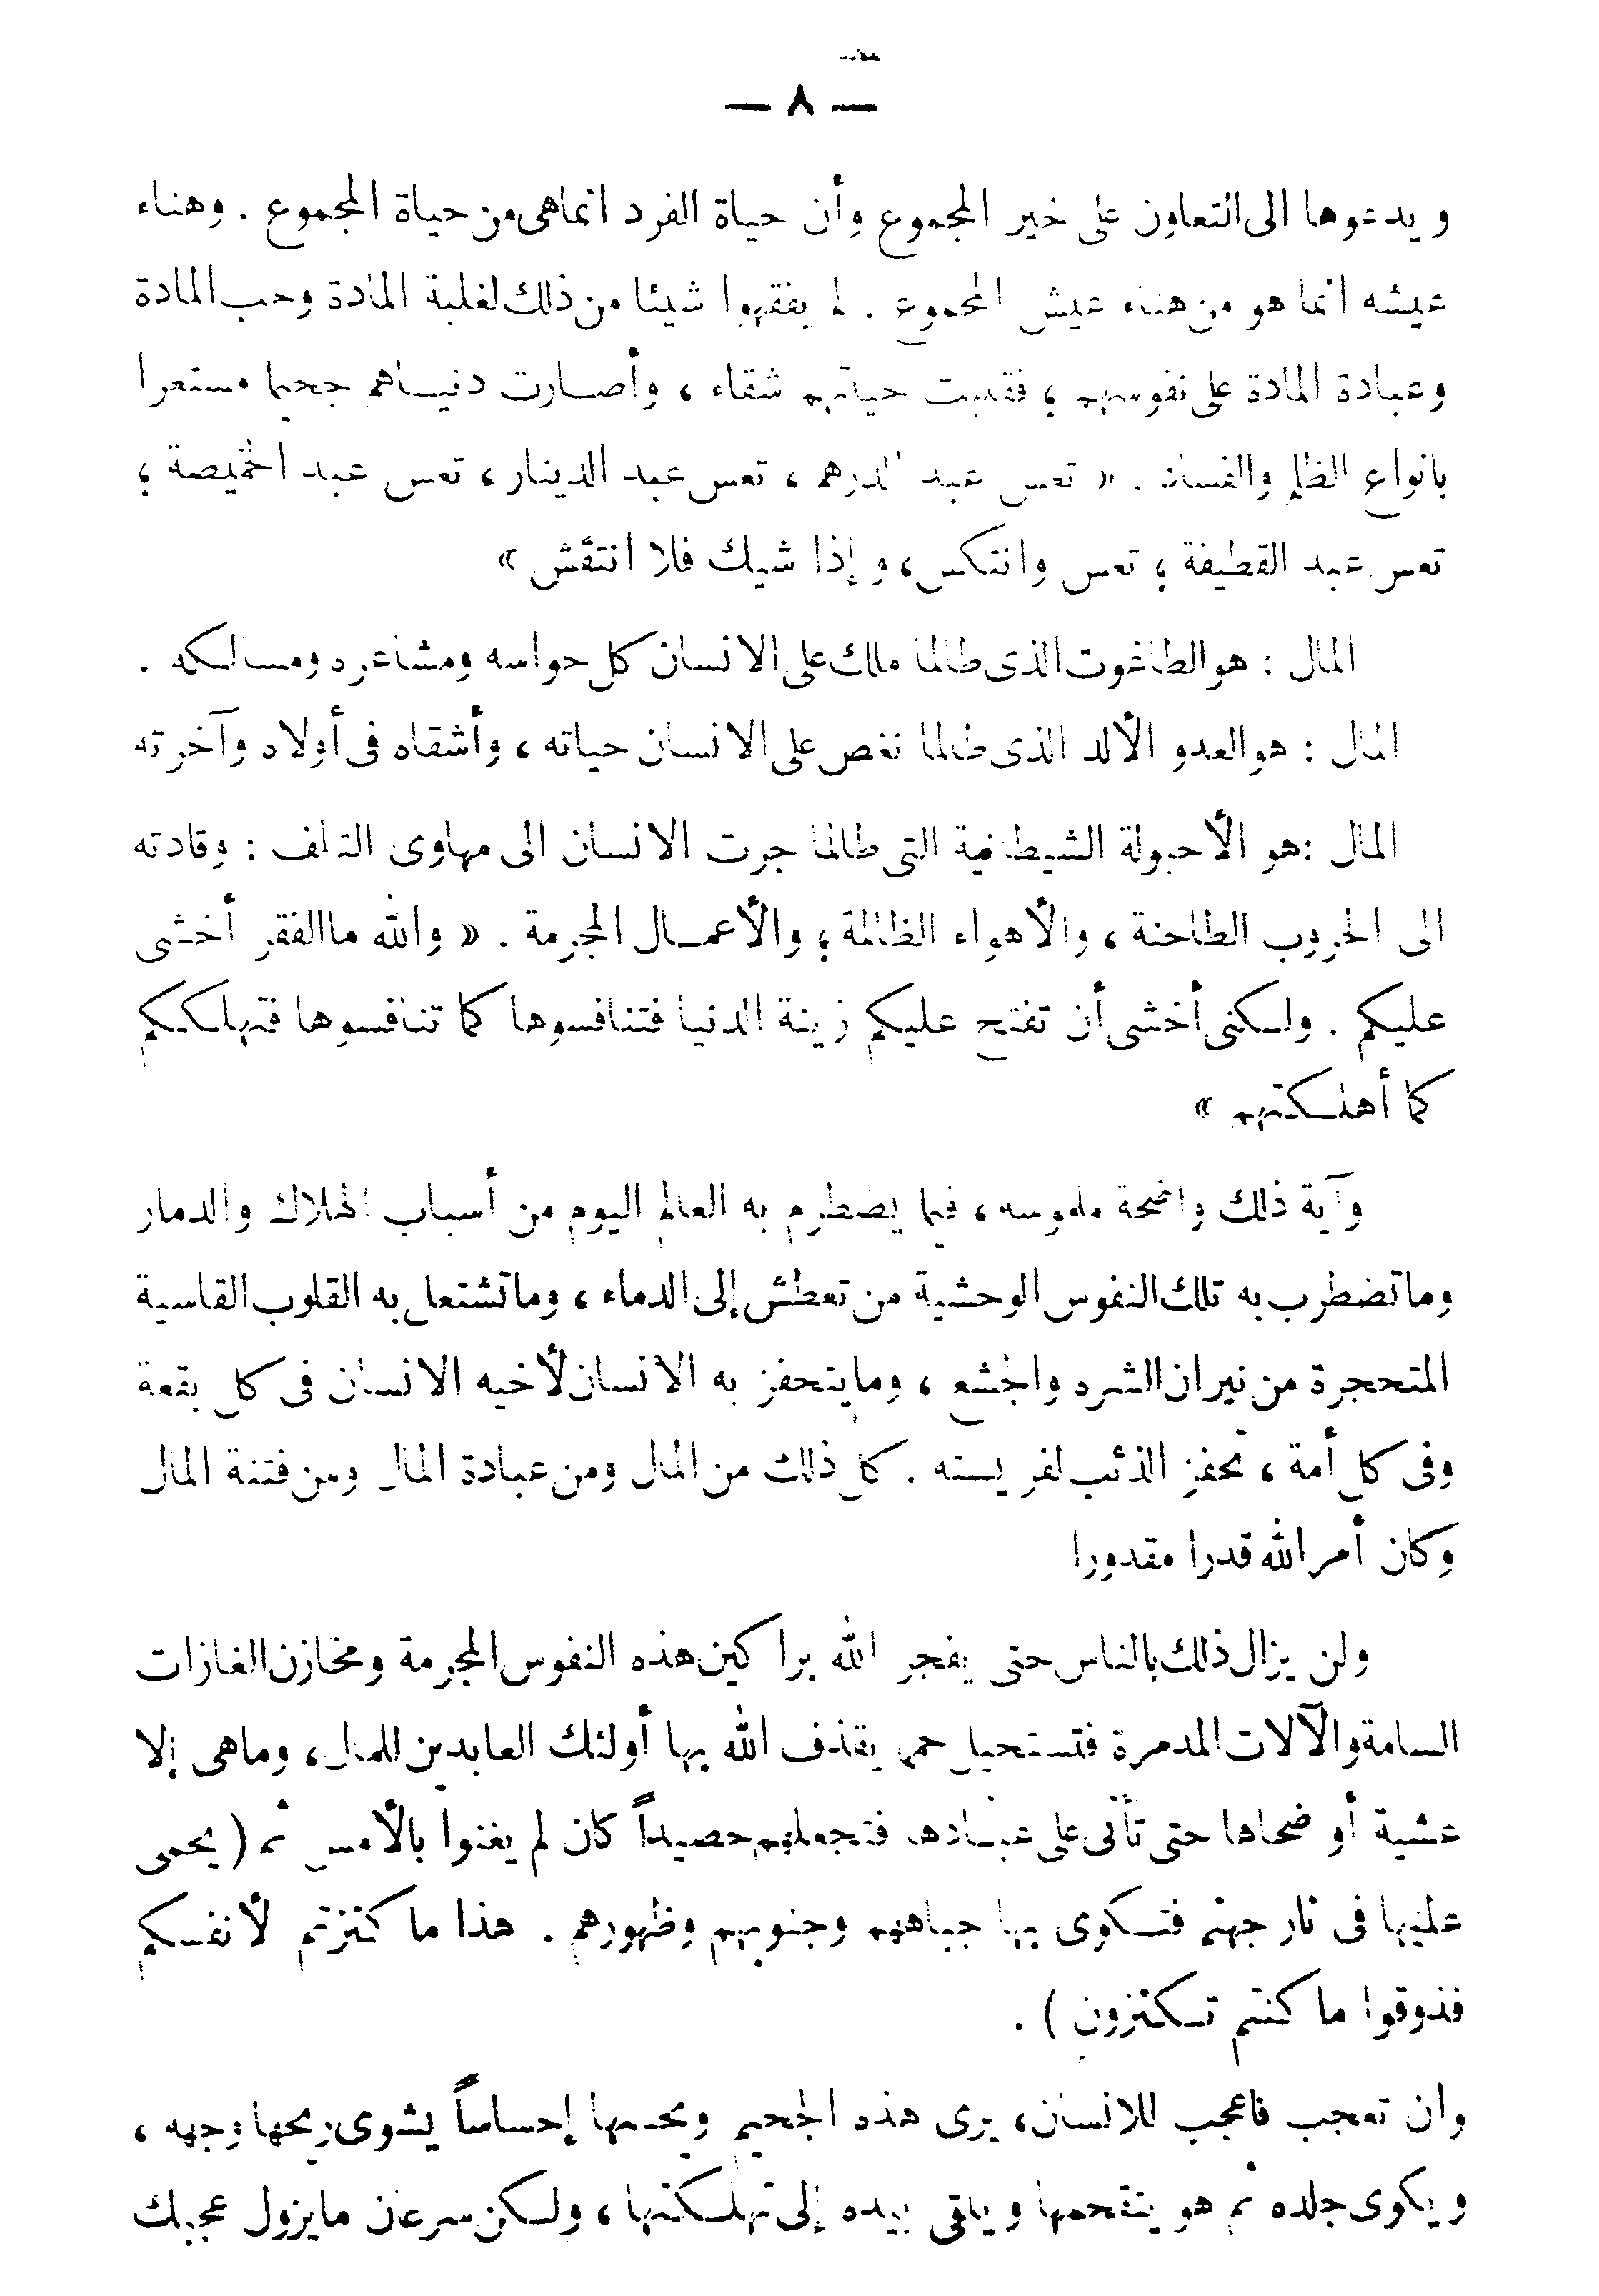 — ٨ —
ويدعوها الى التعاون على خير المجموع وأن حياة الفرد انماهى من حياة المجموع . وهناء
عيشه انما هو من هناء عيش المجموع . لم يفقهوا شيئا من ذلك لغلبة المادة وحب المادة
وعبادة المادة على نفوسهم ؛ فقلبت حياتهم شقاء ، وأصارت دنياهم جحيما مستعرا
بانواع الظلم والفساد . « تعس عبد الدرهم ، تعس عبد الدينار ، تعس عبد الخميصة ؛
تعس عبد القطيفة ؛ تعس وانتكس ، وإذا شيك فلا انتقش »
المال : هو الطاغوت الذى طالما ملك على الانسان كل حواسه ومشاعره ومسالكه .
المال : هو العدو الألد الذى طالما نغص على الانسان حياته ، وأشقاه فى أولاه وآخرته
المال : هو الأحبولة الشيطانية التى طالما جرت الانسان الى مهاوى التلف : وقادته
الى الحروب الطاحنة ، والأهواء الظالمة ؛ والأعمال المجرمة . « والله ما الفقر أخشى
عليكم . ولكنى أخشى أن تفتح عليكم زينة الدنيا فتنافسوها كما تنافسوها فتهلككم
كما أهلكتهم »
وآية ذلك واضحة ملموسه ، فيما يضطرم به العالم اليوم من أسباب الهلاك والدمار
وما تضطرب به تلك النفوس الوحشية من تعطش إلى الدماء ، وما تشتعل به القلوب القاسية
المتحجرة من نيران الشره والجشع ، وما يتحفز به الانسان لأخيه الانسان فى كل بقعة
وفى كل أمة ، تحفز الذئب لفريسته . كل ذلك من المال ومن عبادة المال ومن فتنة المال
وكان أمر الله قدرا مقدورا
ولن يزال ذلك بالناس حتى يفجر الله براكين هذه النفوس المجرمة ومخازن الغازات
السامة والآلات المدمرة فتستحيل حمما يقذف الله بها أولئك العابدين للمال ، وما هى إلا
عشية أو ضحاها حتى تأتى على عبادها فتجعلهم حصيداً كان لم يغنوا بالأمس ثم ( يحمى
عليها فى نار جهنم فتكوى بها جباههم وجنوبهم وظهورهم . هذا ما كنزتم لأنفسكم
فذوقوا ما كنتم تكنزون ) .
وان تعجب فاعجب للانسان ، يرى هذه الجحيم ويحسها إحساساً يشوى ريحها وجهه ،
ويكوى جلده ثم هو يتقحمها ويلقى بيده إلى تهلكتها ، ولكن سرعان ما يزول عجبك